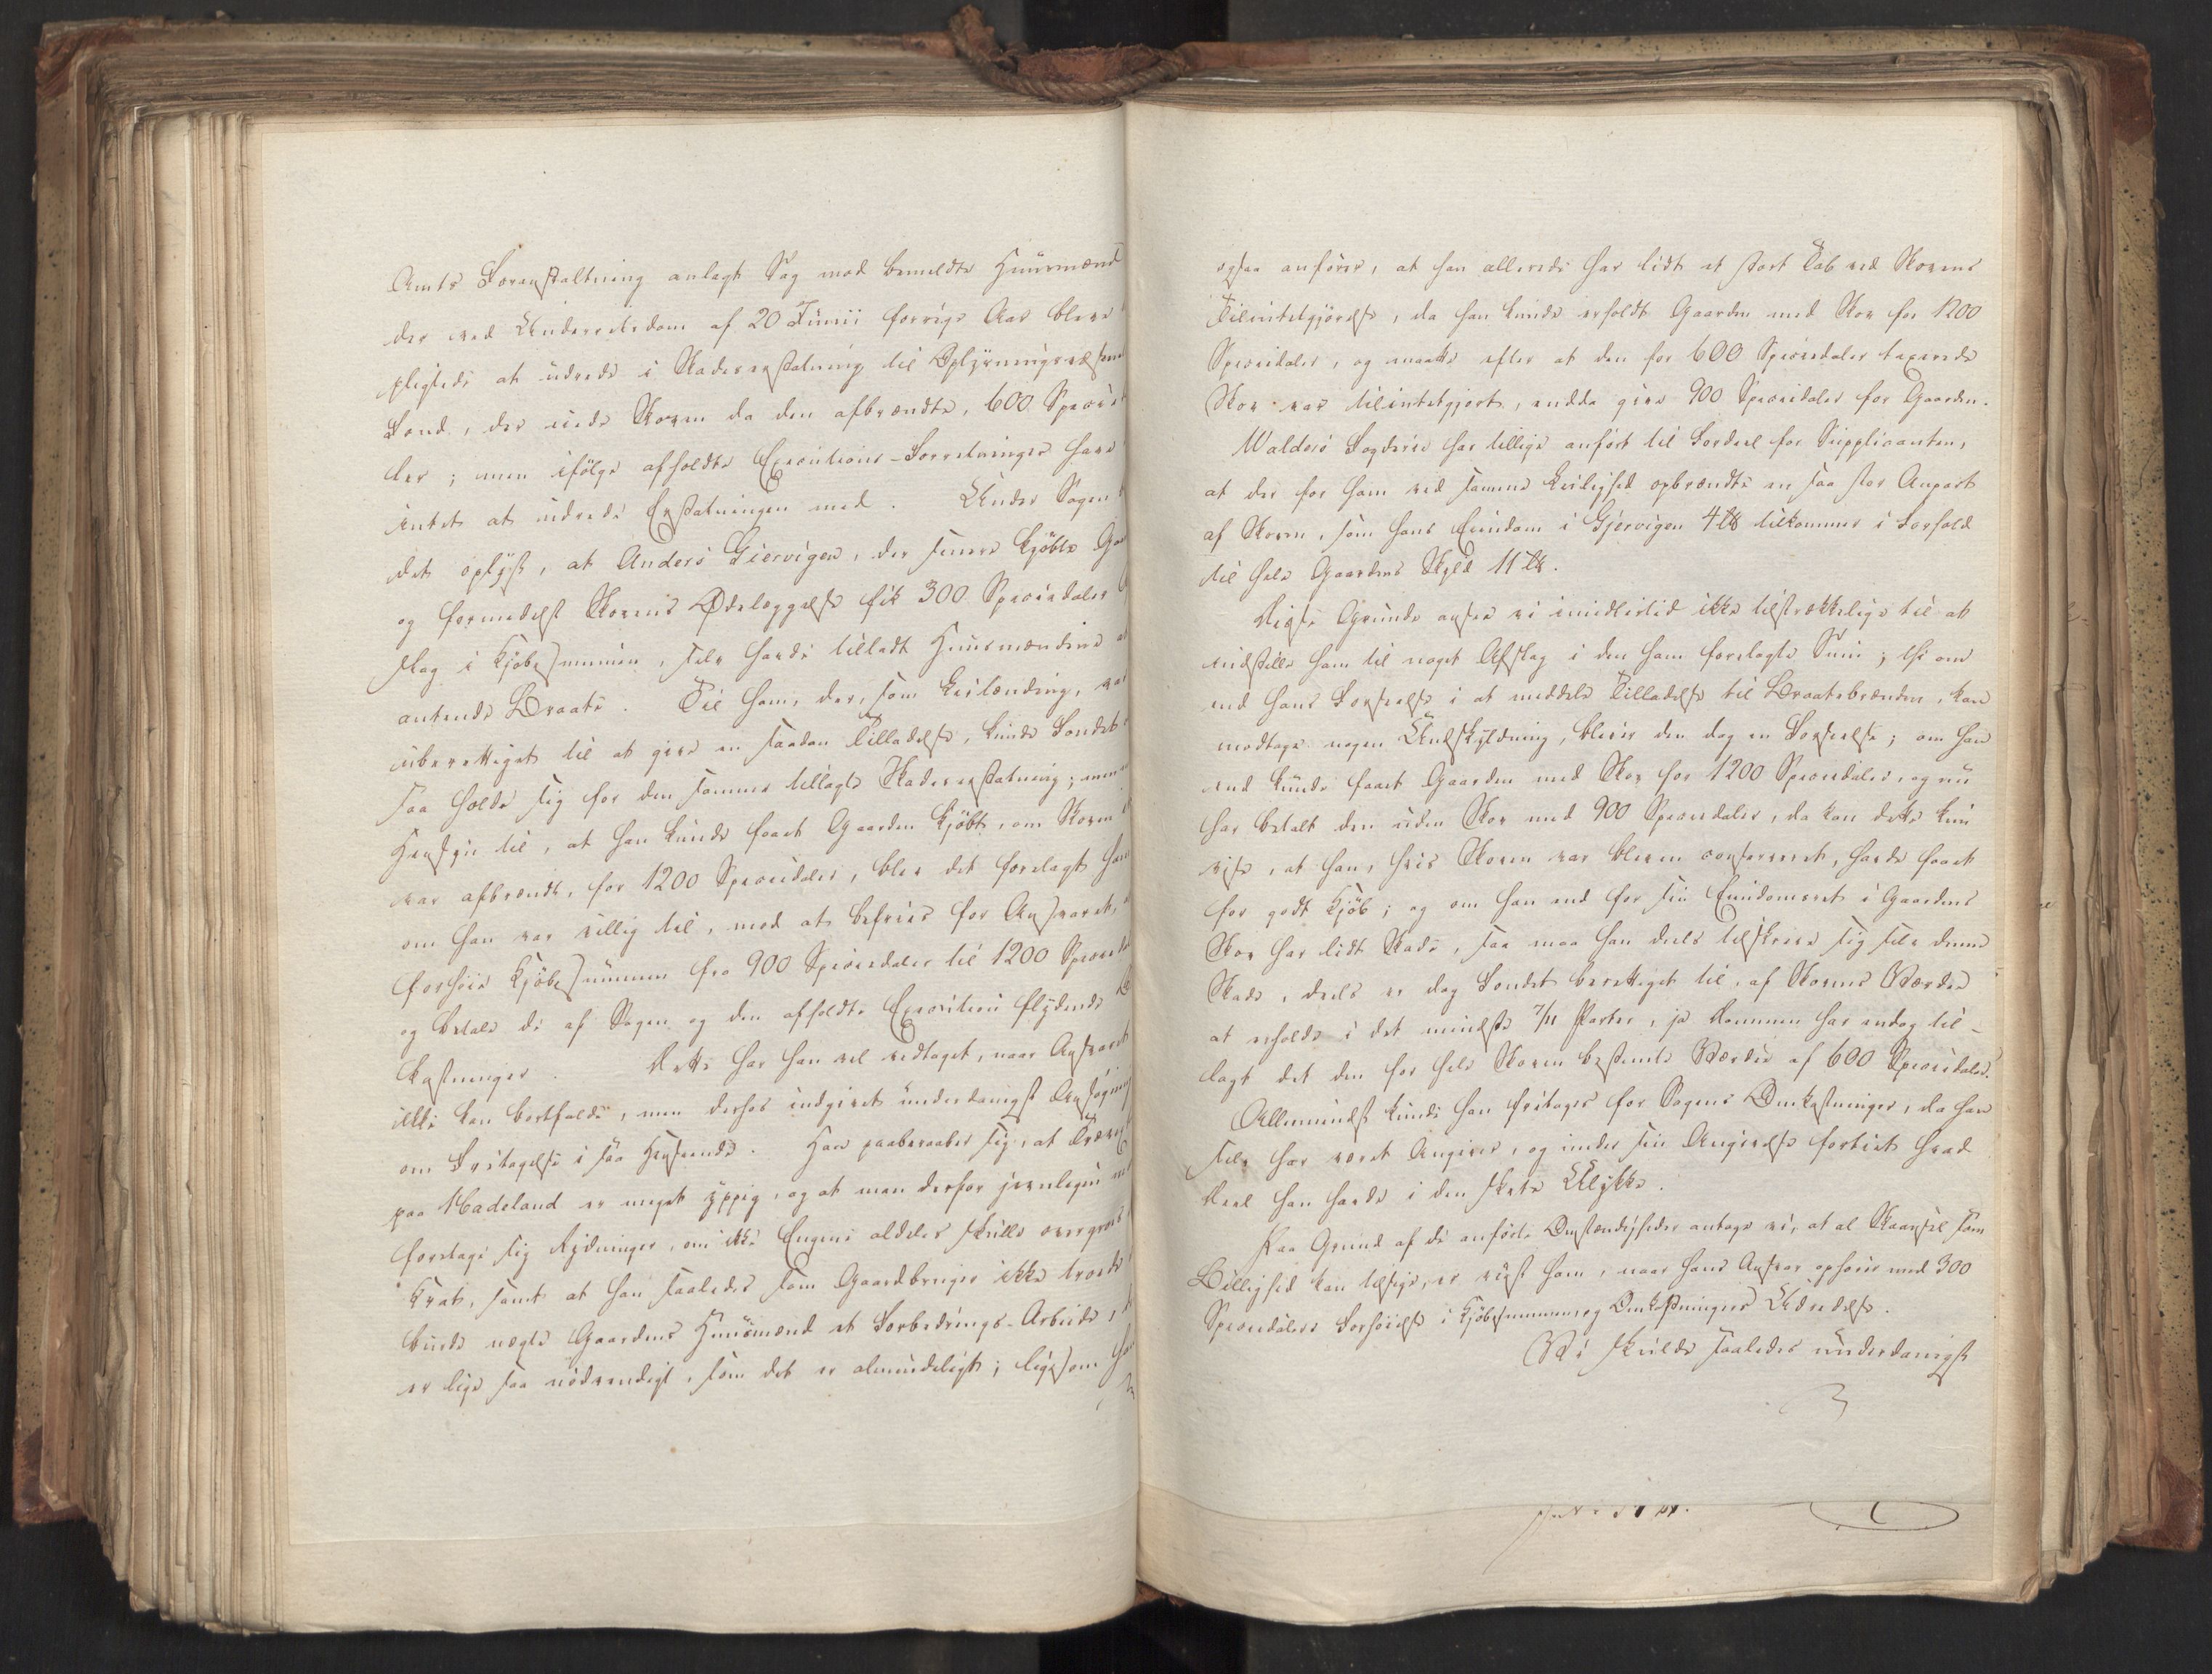 Amts Foranstaltning anlagt Sag mod bemeldte Huusmænd
der ved Underretsdom af 20 Junii forrige Aar bleve
pligtede at udrede i Skadeserstatning til Oplysningsvæsenets
Fond, der eiede Skoven da den afbrændte, 600 Specie
ler; men ifølge afholdte Executions-Forretninger have
intet at udrede Erstatningen med. Under Sagen
det oplyst, at Anders Giervigen, der senere kjøbte Gaar
og formedelst Skovens Ødelæggelse fik 300 Speciedaler
slag i Kjøbesummen, selv havde tilladt Huusmændene at
antænde Braate. Til ham, der, som Leilænding, var
uberettiget til at give en saadan Tilladelse, kunde Fondet
saa holde sig for den samme tillagte Skadeserstatning; men
Hensyn til, at han kunde faaet Gaarden kjøbt, om Skoven
var afbrændt, for 1200 Speciedaler, blev det forelagt ham
om han var villig til, mod at befries for Ansvaret,
forhøie Kjøbesummen fra 900 Speciedaler til 1200 Specieda
og betale de af Sagen og den afholdte Execution flydende
kostninger. Dette har han vel vedtaget, naar Ansvaret
ikke kan bortfalde, men derhos indgivet underdanigst Ansøgning
om Fritagelse i saa Henseende. Han paaberaaber sig, at
paa Hadeland er meget yppig, og at man derfor jevnligen
foretage sig Rydninger, om ikke Engene aldeles skulle overgroes
Krat, samt at han saaledes som Gaardbruger ikke troede
burde nægte Gaardens Huusmænd et Forbedrings-Arbeide,
er lige saa nødvendigt, som det er almindeligt; ligesom han
ogsaa anfører, at han allerede har lidt et stort Tab ved Skovens
Tilintetgjørelse, da han kunde erholdt Gaarden med Skov for 1200
Speciedaler, og maatte efter at den for 600 Speciedaler taxerede
Skov var tilintetgjort, endda give 900 Speciedaler for Gaarden.
Walders Fogderie har tillige anført til Fordeel for Supplicanten,
at der for ham ved samme Leilighed opbrændte en saa stor Anpart
af Skoven, som hans Eiendom i Gjervigen 4 ℔ tilkommer i Forhold
til hele Gaardens Skyld 11 ℔.
Disse Grunde ansee vi imidlertid ikke tilstrækkelige til at
indstille ham til noget Afslag i den ham forelagte Sum; thi om
end hans Forseelse i at meddele Tilladelse til Braatebrænden, kan
modtage nogen Undskyldning, bliver den dog en Forseelse; om han
end kunde faaet Gaarden med Skov for 1200 Speciedaler, og nu
har betalt den uden Skov med 900 Speciedaler, da kan dette kun
vise, at han, hvis Skoven var bleven conserveret, havde faaet
for godt Kjøb; og om han end for sin Eiendomsret i Gaardens
Skov har lidt Skade, saa maa han deels tilskrive sig selv denne
Skade, deels er dog Fondet berettiget til, af Skovens Værdie
at erholde i det mindste 7/11 Parter, ja Dommen har endog til-
lagt det den for hele Skoven bestemte Værdie af 600 Speciedaler.
Allermindst kunde han fritages for Sagens Omkostninger, da han
selv har været Angiver, og under sin Angivelse fortiet hvad
Deel han havde i den skete Ulykke.
Paa Grund af de anførte Omstændigheder antage vi, at al Skaansel som
Billighed kan tilsige, er viist ham, naar hans Ansvar ophører med 300
Speciedalers Forhøielse i Kjøbesummen, og Omkostningers Udredelse.
Vi skulde saaledes underdanigst